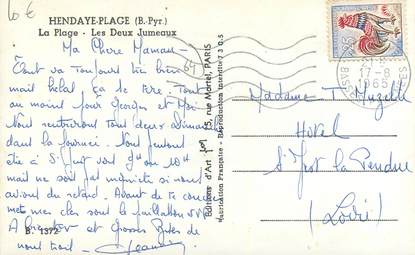 10 €
HENDAYE-PLAGE (B.-Pyr.)
La Plage - Les Deux Jumeaux
Ma Chère Maman
Tout va toujours très bien
mais hélas ça se tire. Tout
au moins pour Georges et Moi
Nous rentrerons tous deux dimanche
dans la journée. Nous pensons
être à St Just vers 9h ou 10h
mais ne sois pas inquiète si nous
avions du retard. Avant de te
mettre mes clés sous le paillasson
A bientôt et Grosses Bises de
nous trois.
B. 1372
Editions d'Art 15, rue Martel, PARIS
Fabrication Française - Reproduction interdite
17-8
1965
Madame T.
Hôtel
St Just la Pendue
(Loire)